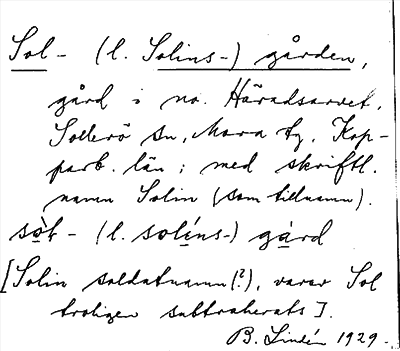 Sol- (l. Solins-) gården,
gård i no. Häradsarvet,
Sollerö sn, Mora tg, Kop-
parb. län; med skriftl.
namn Solin (som tillnamn).
so̩l- (l. solíns-) gạrd
[Solin soldatnamn(?), varav Sol
troligen subtraherats].
B. Lindén 1929.